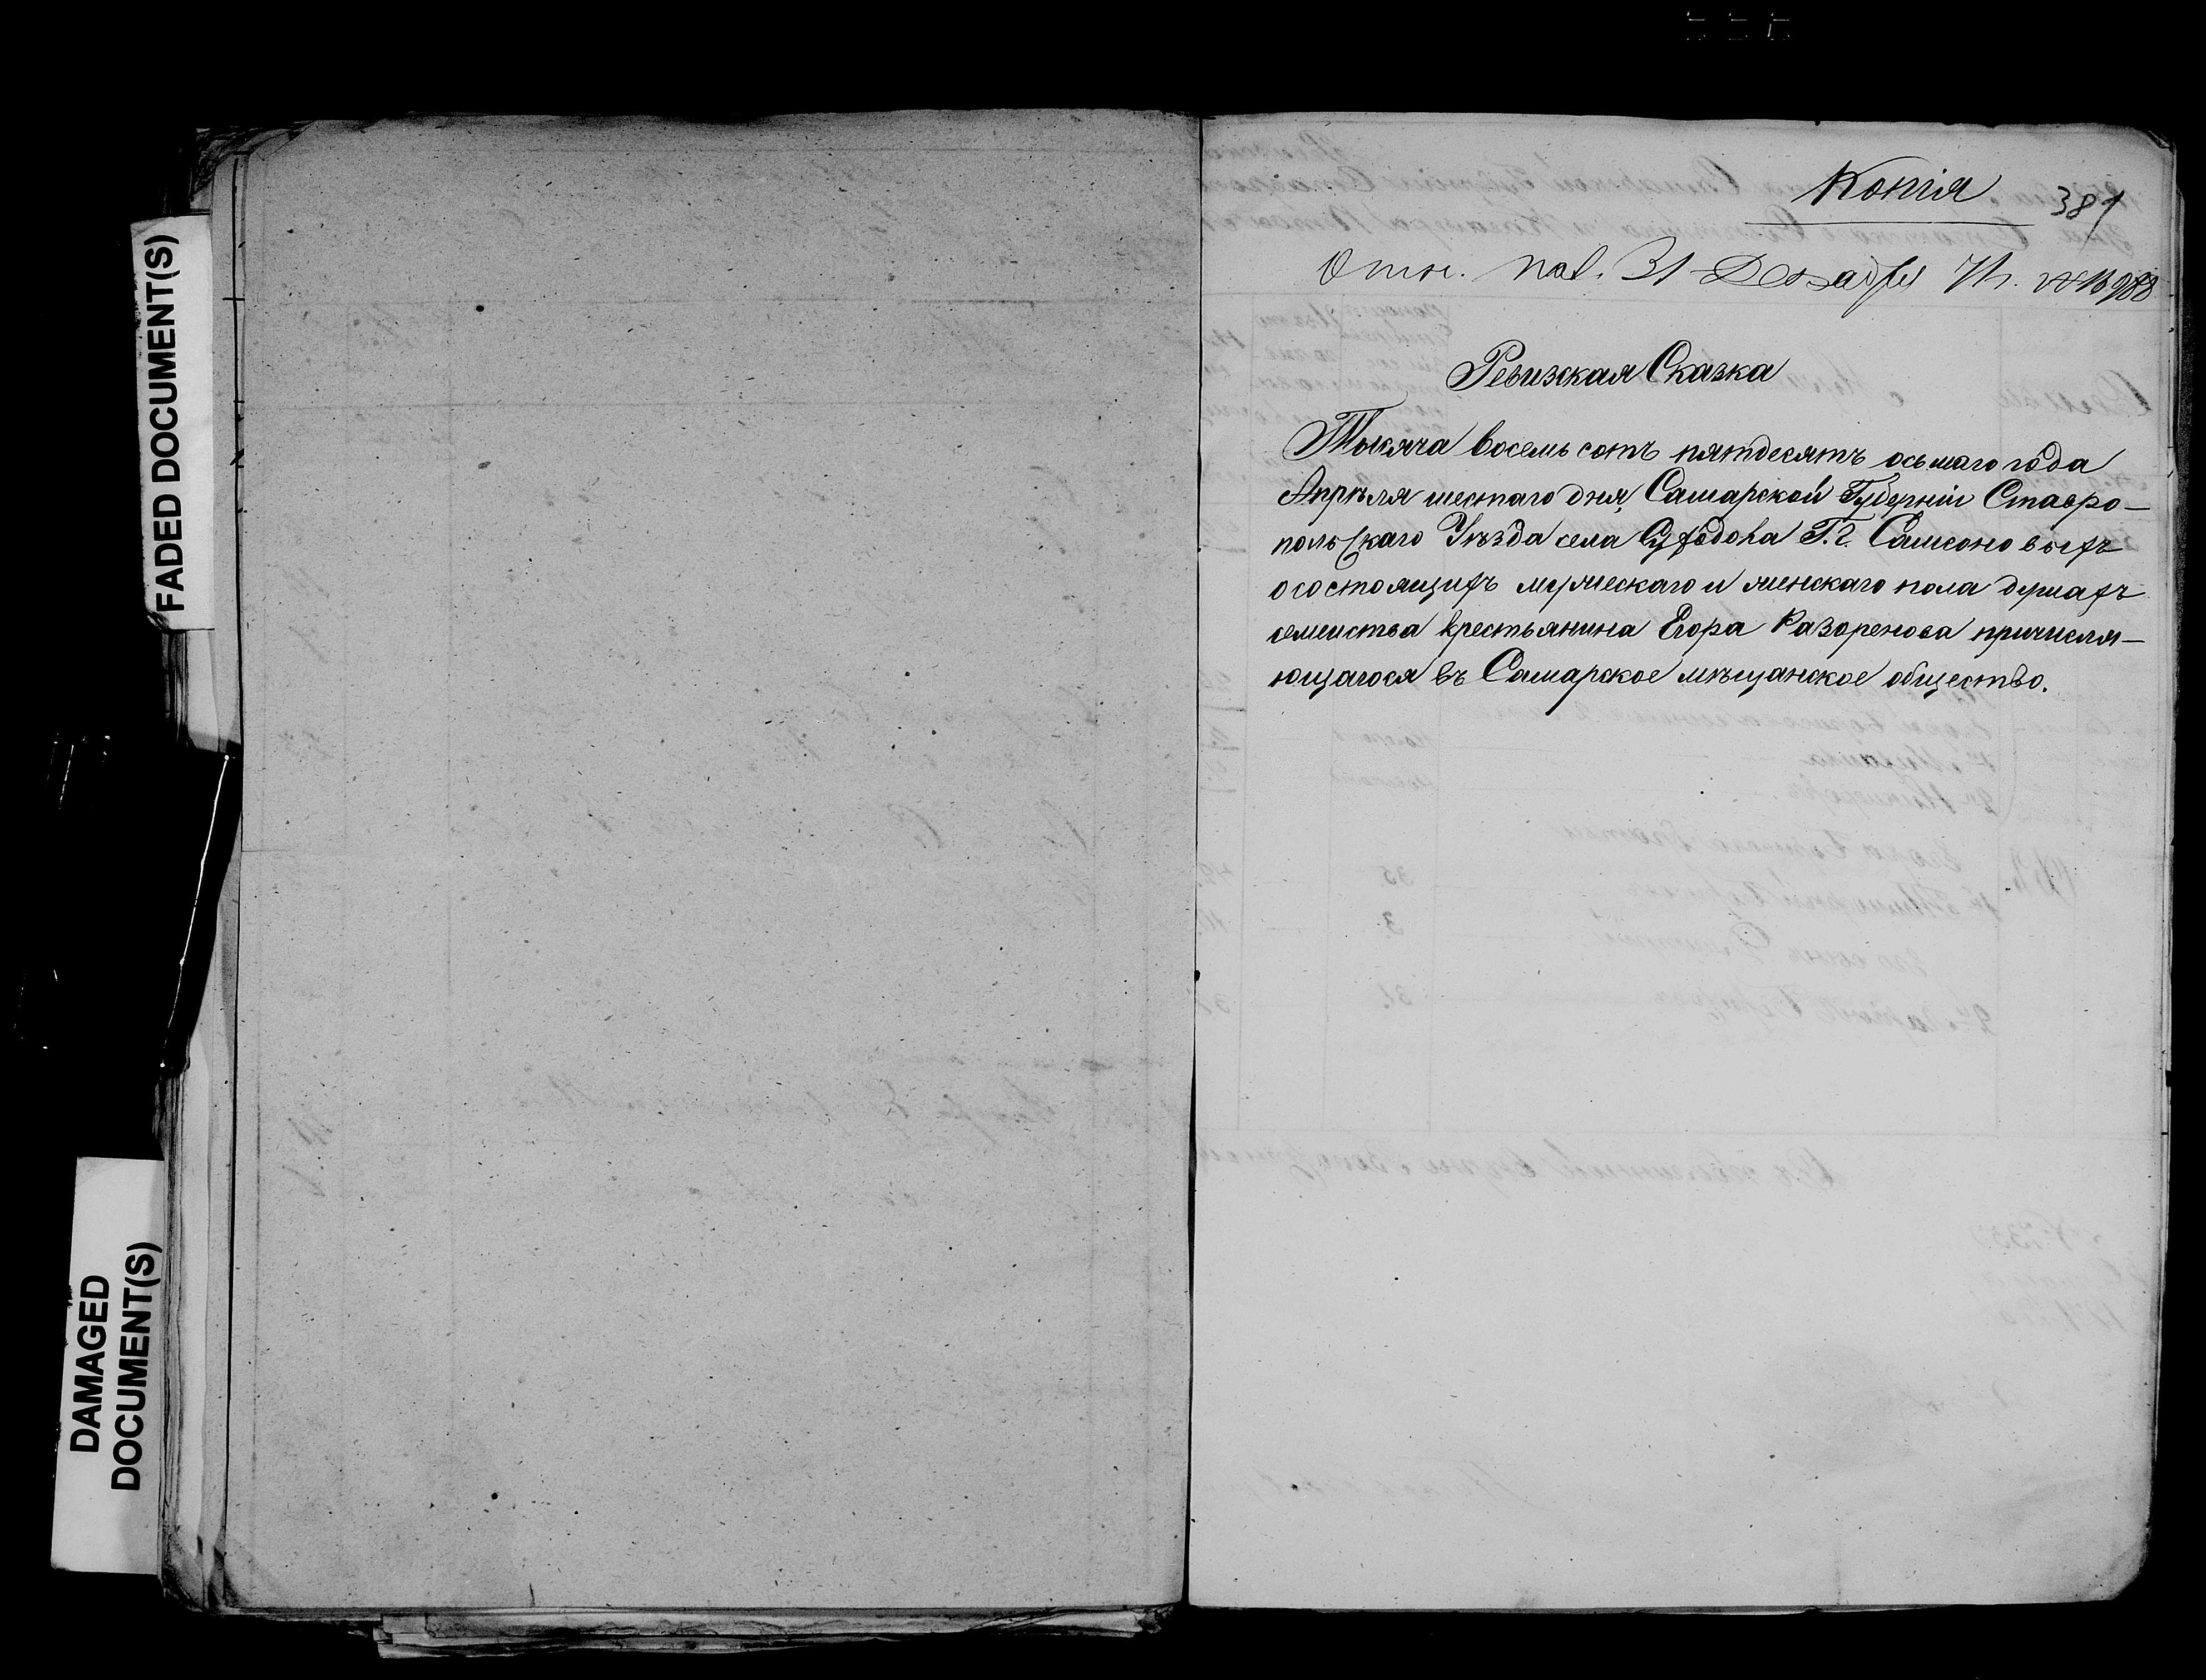 FADED DOCUMENT(S)
DAMAGED
DOCUMENT(S)
Копія
381
Отн. 31 Декабря 71 г. №
Ревизская Сказка
Тысяча восемь сотъ пятдесятъ осьмаго года
Апрѣля шестаго дня, Самарской Губерніи Ставро-
польскаго Уѣзда села Г.г. Самсоновыхъ
о состоящихъ мужескаго и женскаго пола душахъ
семейства крестьянина Егора Разоренова причисля-
ющагося въ Самарское мѣщанское общество.